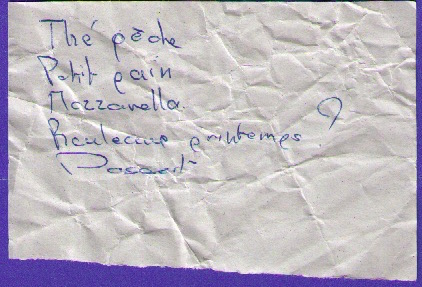 Thé pêche
Petit pain
Mozzarella
Rouleaux printemps ?
Dessert